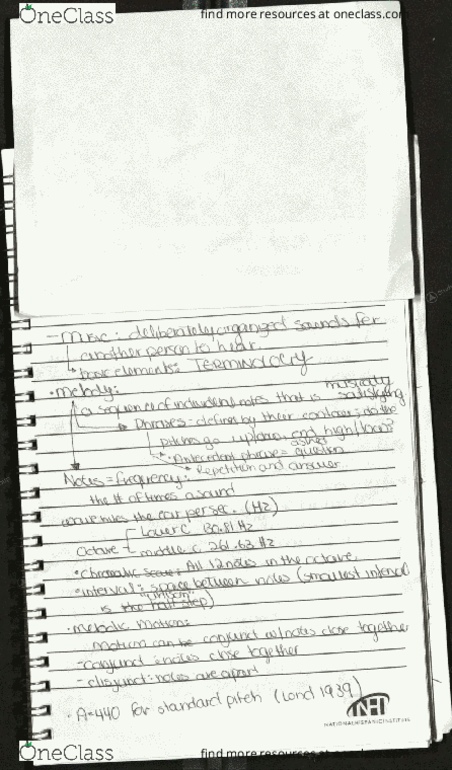 OneClass
find more resources at oneclass.com
- Music: deliberately organized sounds for
another person to hear.
basic elements: TERMINOLOGY
• Melody:
- a sequence of individual notes that is musically satisfying
Phrases - defined by their contour; do the
pitches go up/down and high/low?
• Antecedent phrase = asks question
• Repetition and answer
Notes = frequency:
the # of times a sound
wave hits the ear per sec. (Hz)
Octave lower C 130.81 Hz
middle C 261.63 Hz
• chromatic scale: All 12 notes in the octave.
• interval: space between notes (smallest interval
is the half step) "unison"
• Melodic Motions:
motion can be conjunct w/ notes close together
- conjunct: notes close together
- disjunct: notes are apart
• A=440 for standard pitch (Lond 1939)
NHI
NATIONAL HISPANIC INSTITUTE
OneClass
find more resources at oneclass.com